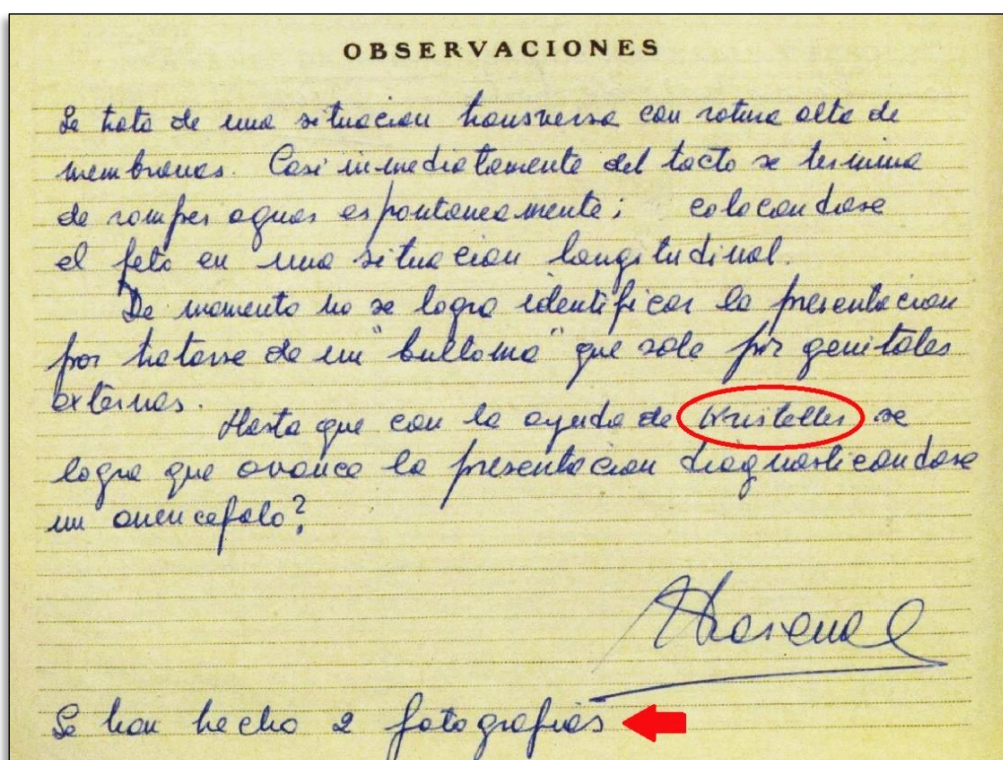 OBSERVACIONES
Se trata de una situacion transversa con rotura alta de
membranas. Casi inmediatamente del tacto se termina
de romper aguas espontaneamente; colocandose
el feto en una situacion longitudinal.
De momento no se logra identificar la presentacion
por tratarse de un "bulloma" que sale por genitales
externos.
Hasta que con la ayuda de Kristeller se
logra que avance la presentacion diagnosticandose
un anencefalo?
Se han hecho 2 fotografias